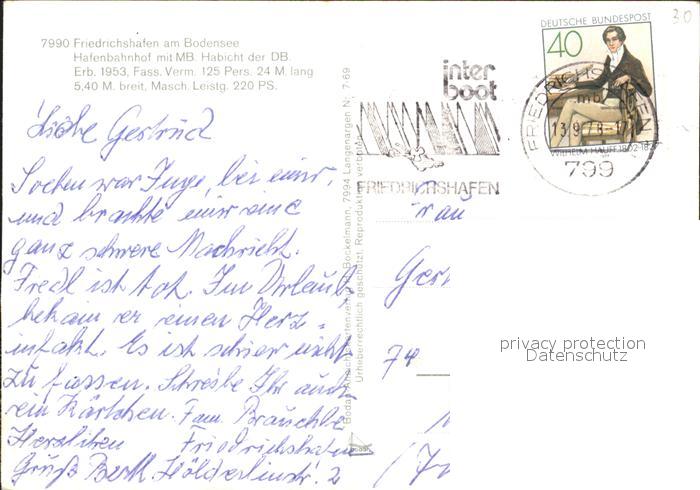 7990 Friedrichshafen am Bodensee
Hafenbahnhof mit MB. Habicht der DB.
Erb. 1953, Fass. Verm. 125 Pers. 24 M. lang
5,40 M. breit, Masch. Leistg. 220 PS.
Liebe Gertrud
Soeben war Inge, bei einer,
und brachte eine
ganz schwere Nachricht.
Fredl ist tot. Im Urlaub
bekam er einen Herz-
infakt. Es ist schier nicht
zu fassen. Schreibe Ihr auch
ein Kärtchen. Fam.
Herzlichen Friedrichshafen
Gruß Hölderlinstr. 2
Bodan-Ansichtskartenverlag Bockelmann, 7994 Langenargen N. 7-69
Urheberrechtlich geschützt. Reproduktion verboten
inter
boot
FRIEDRICHSHAFEN
DEUTSCHE BUNDESPOST
40
WILHELM HAUFF 1802-182
FRIEDRICHSHAFEN
mb
13.9.78-17
799
30
rau
Ger
74
(7
privacy protection
Datenschutz